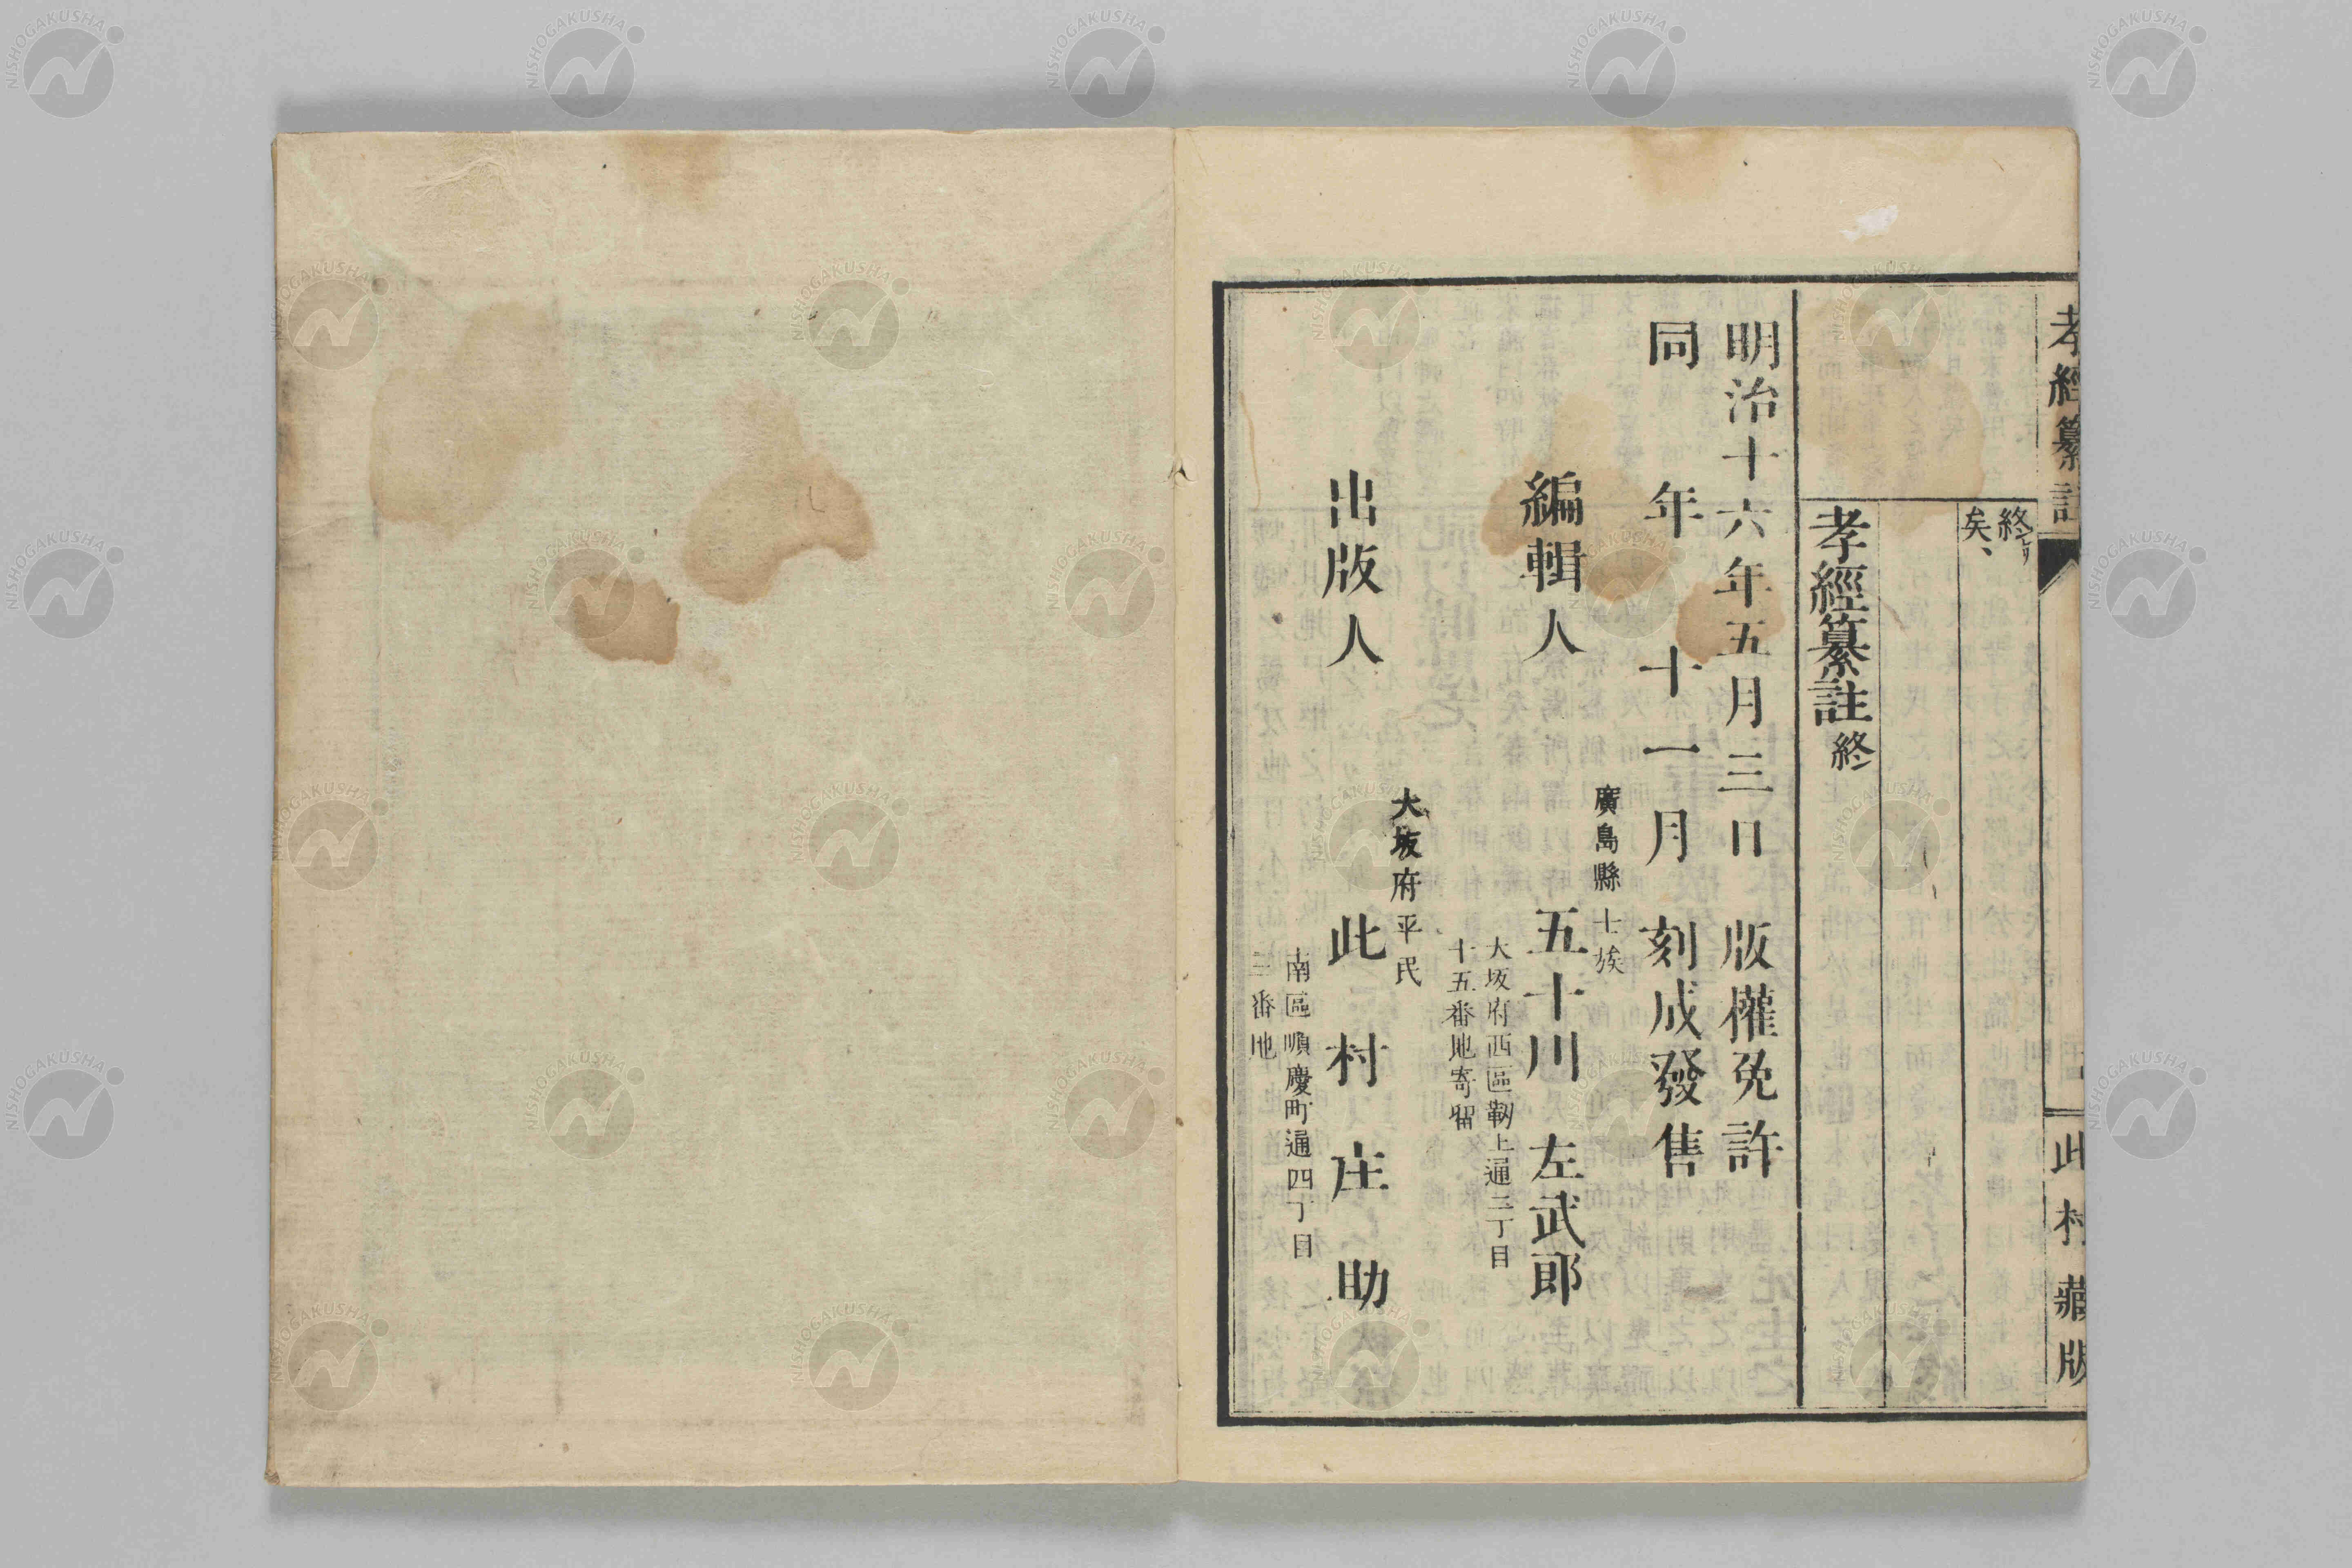 孝經纂註
此村藏版
終ル
矣、
孝經纂註終
明治十六年五月三日 版權免許
同年十一月 刻成發售
廣島縣士族
編輯人 五十川左武郎
大坂府西區靭上通三丁目
十五番地寄留
大坂府平民
出版人 此村庄助
南區順慶町通四丁目
三番地
NISHOGAKUSHA